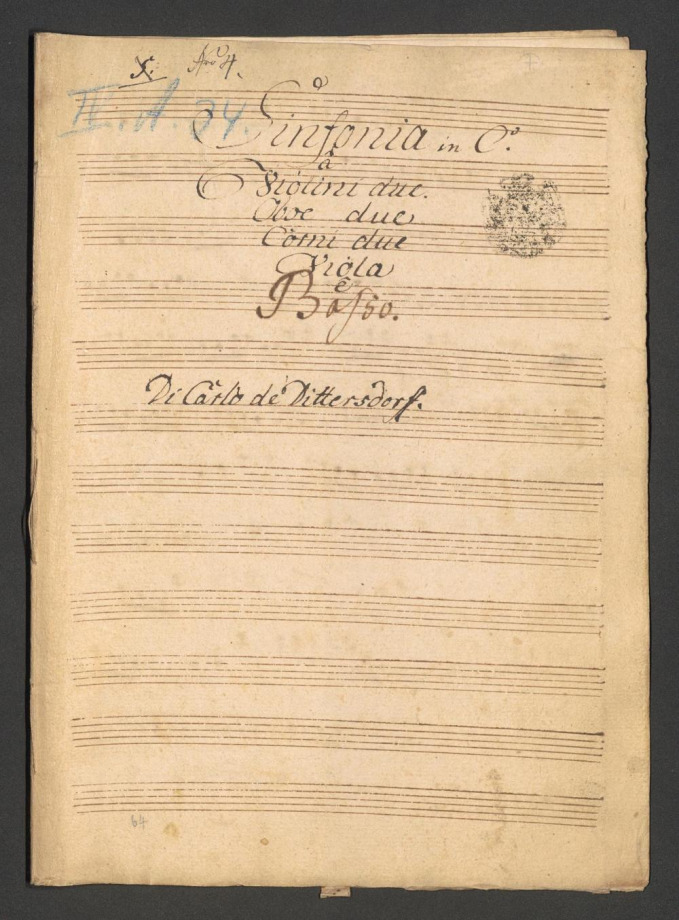 X. Nro 4.
IV. A. 34.
Sinfonia in C.
à
Violini due.
Oboe due
Corni due
Viola
è
Basso.
Di Carlo de Dittersdorf.
64